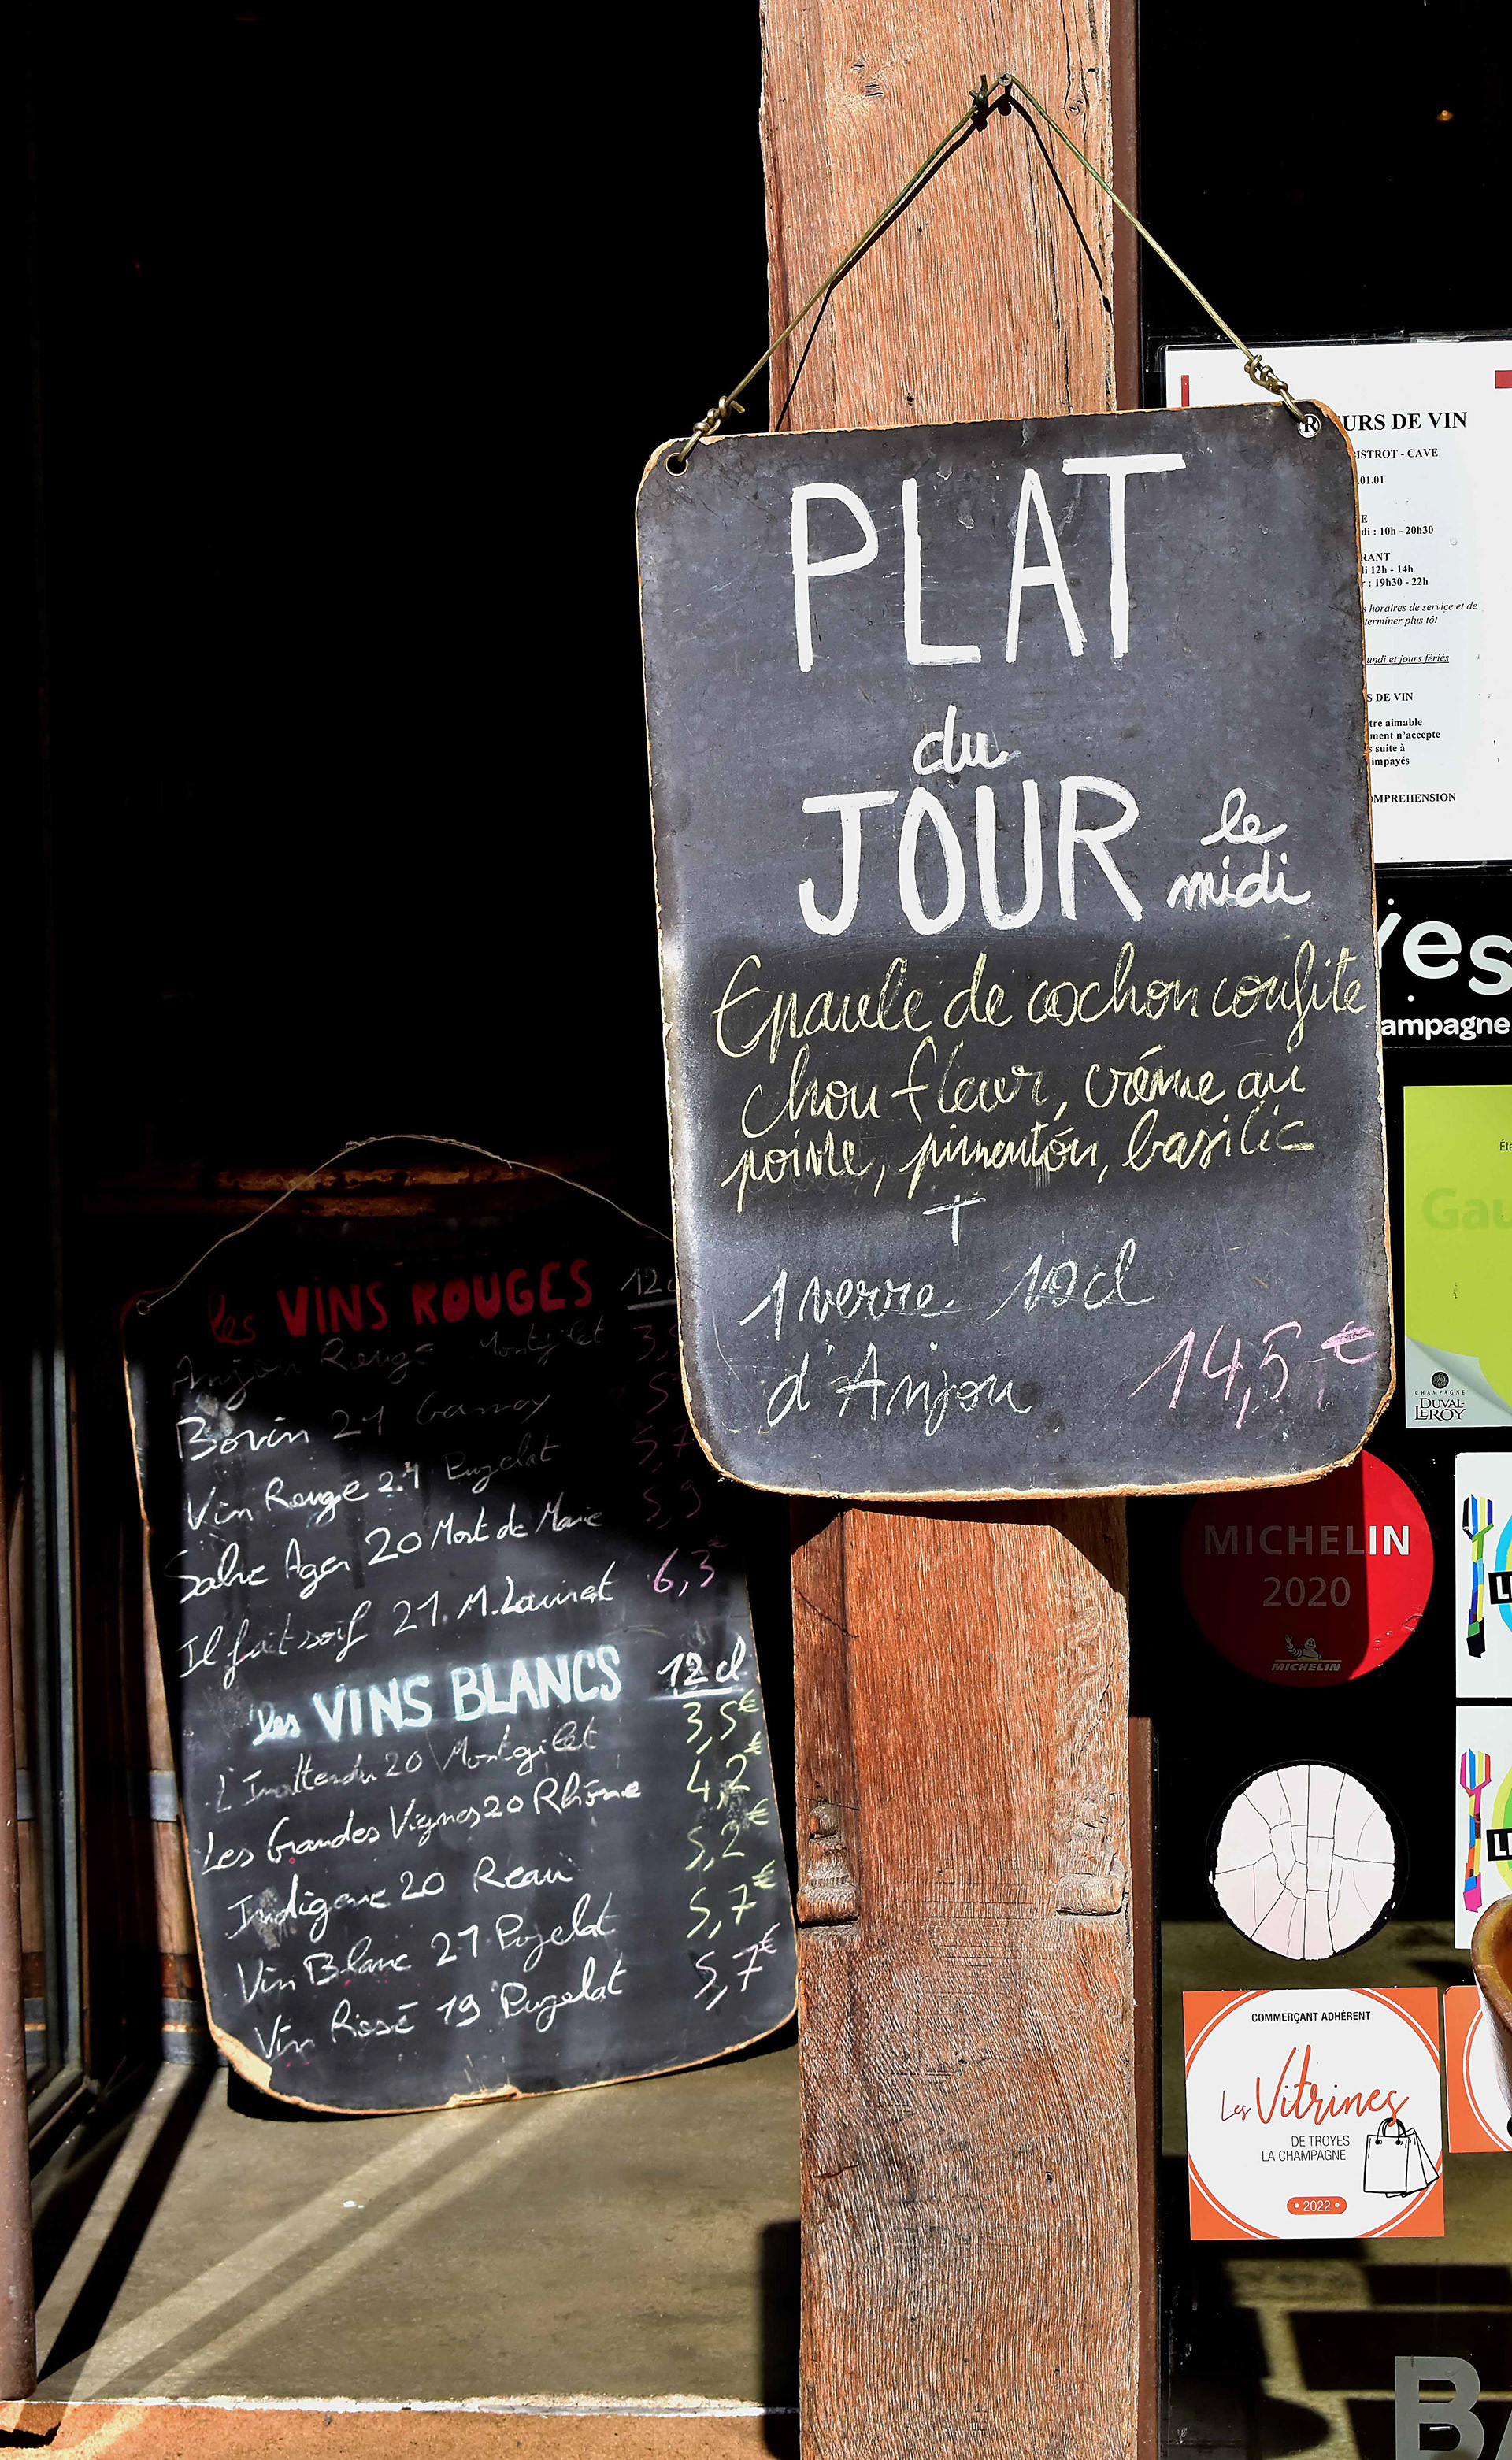 PLAT
du
JOUR le midi
Epaule de cochon confite
chou fleur, crème au
poivre, pimentón, basilic
+
1 verre
d'Anjou 14,5 €
Les VINS ROUGES 12c
Anjou Rouge Montgilet 3,5
Bovin 21 Gamay 5
Vin Rouge 21 Puzelat 5,7
20 Mont de Marie 5,9
Il fait soif 21 M. 6,3€
Les VINS BLANCS 12 cl
L'Inattendu 20 Montgilet 3,5€
Les Grandes Vignes 20 Rhône 4,2€
Indigene 20 Reau 5,2€
Vin Blanc 21 Puzelat 5,7€
Vin Rosé 19 Puzelat 5,7€
R URS DE VIN
ISTROT - CAVE
.01.01
E
di : 10h - 20h30
RANT
li 12h - 14h
: 19h30 - 22h
s horaires de service et de
terminer plus tôt
undi et jours fériés
S DE VIN
tre aimable
ment n'accepte
s suite à
impayés
OMPREHENSION
Yes
ampagne
Éta
Gau
CHAMPAGNE
DUVAL-
LEROY
MICHELIN
2020
MICHELIN
COMMERÇANT ADHÉRENT
Les Vitrines
DE TROYES
LA CHAMPAGNE
• 2022 •
B